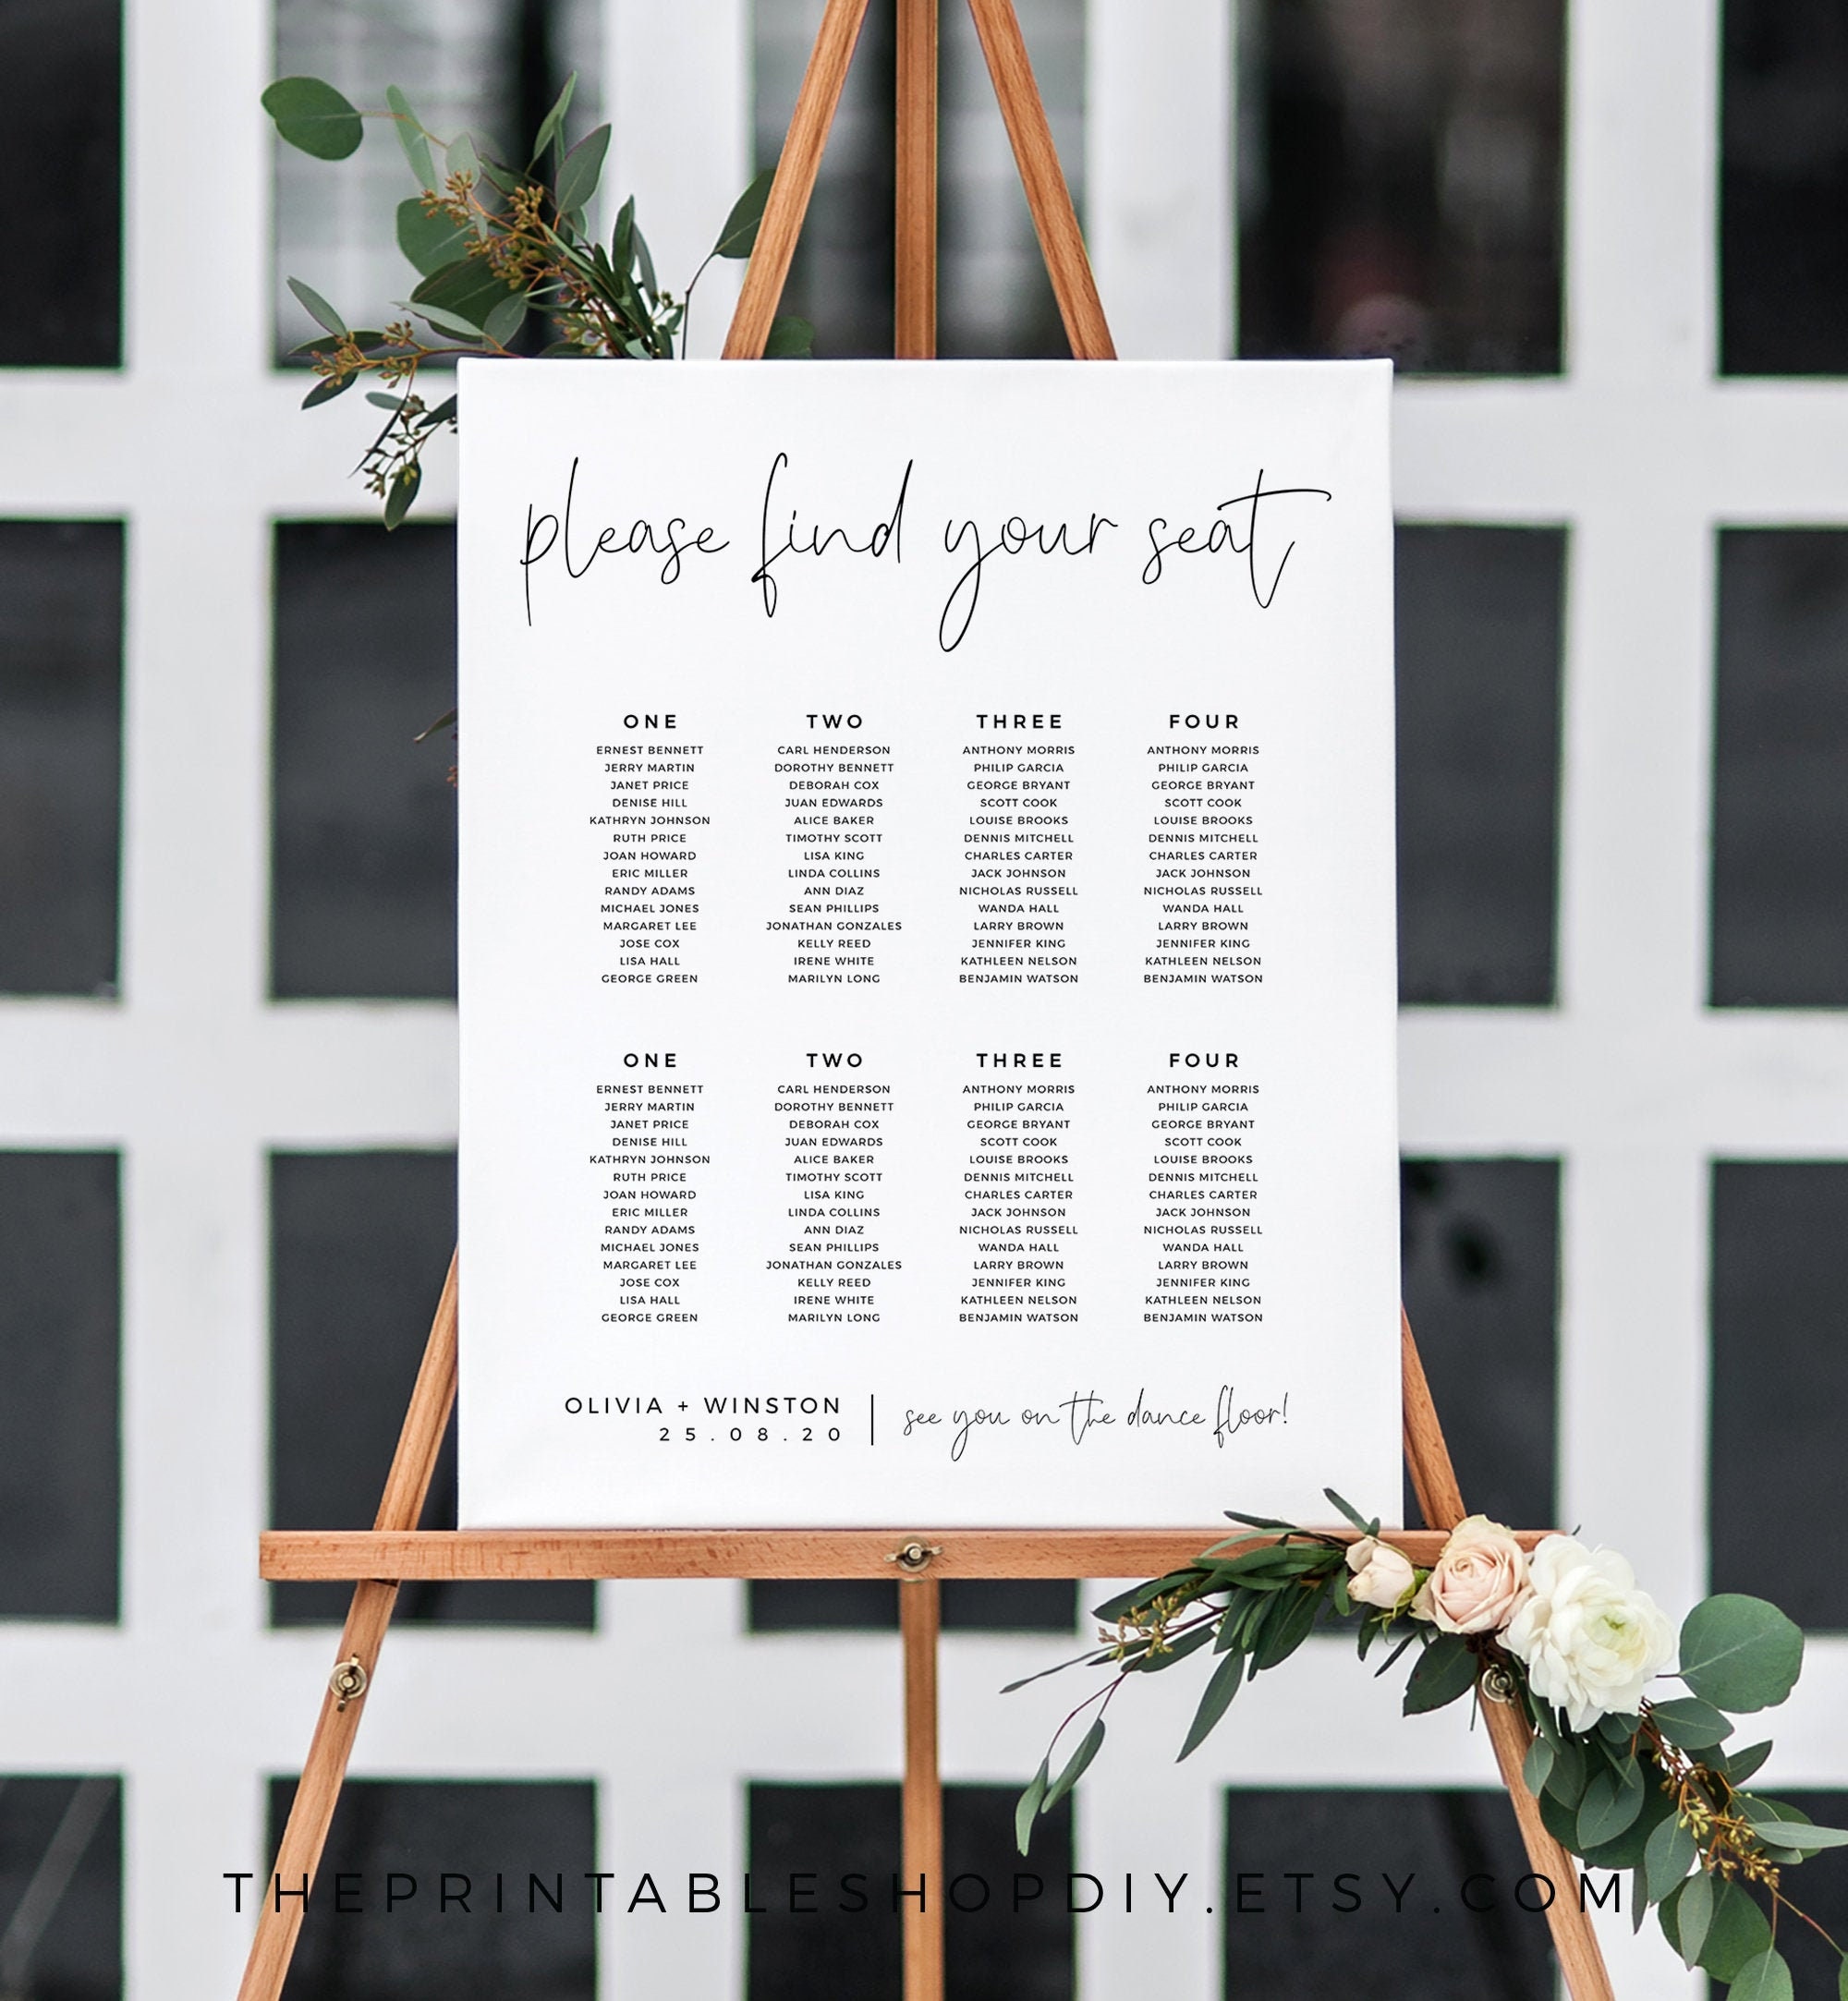 please find your seat
ONE
ERNEST BENNETT
JERRY MARTIN
JANET PRICE
DENISE HILL
KATHRYN JOHNSON
RUTH PRICE
JOAN HOWARD
ERIC MILLER
RANDY ADAMS
MICHAEL JONES
MARGARET LEE
JOSE COX
LISA HALL
GEORGE GREEN
TWO
CARL HENDERSON
DOROTHY BENNETT
DEBORAH COX
JUAN EDWARDS
ALICE BAKER
TIMOTHY SCOTT
LISA KING
LINDA COLLINS
ANN DIAZ
SEAN PHILLIPS
JONATHAN GONZALES
KELLY REED
IRENE WHITE
MARILYN LONG
THREE
ANTHONY MORRIS
PHILIP GARCIA
GEORGE BRYANT
SCOTT COOK
LOUISE BROOKS
DENNIS MITCHELL
CHARLES CARTER
JACK JOHNSON
NICHOLAS RUSSELL
WANDA HALL
LARRY BROWN
JENNIFER KING
KATHLEEN NELSON
BENJAMIN WATSON
FOUR
ANTHONY MORRIS
PHILIP GARCIA
GEORGE BRYANT
SCOTT COOK
LOUISE BROOKS
DENNIS MITCHELL
CHARLES CARTER
JACK JOHNSON
NICHOLAS RUSSELL
WANDA HALL
LARRY BROWN
JENNIFER KING
KATHLEEN NELSON
BENJAMIN WATSON
ONE
ERNEST BENNETT
JERRY MARTIN
JANET PRICE
DENISE HILL
KATHRYN JOHNSON
RUTH PRICE
JOAN HOWARD
ERIC MILLER
RANDY ADAMS
MICHAEL JONES
MARGARET LEE
JOSE COX
LISA HALL
GEORGE GREEN
TWO
CARL HENDERSON
DOROTHY BENNETT
DEBORAH COX
JUAN EDWARDS
ALICE BAKER
TIMOTHY SCOTT
LISA KING
LINDA COLLINS
ANN DIAZ
SEAN PHILLIPS
JONATHAN GONZALES
KELLY REED
IRENE WHITE
MARILYN LONG
THREE
ANTHONY MORRIS
PHILIP GARCIA
GEORGE BRYANT
SCOTT COOK
LOUISE BROOKS
DENNIS MITCHELL
CHARLES CARTER
JACK JOHNSON
NICHOLAS RUSSELL
WANDA HALL
LARRY BROWN
JENNIFER KING
KATHLEEN NELSON
BENJAMIN WATSON
FOUR
ANTHONY MORRIS
PHILIP GARCIA
GEORGE BRYANT
SCOTT COOK
LOUISE BROOKS
DENNIS MITCHELL
CHARLES CARTER
JACK JOHNSON
NICHOLAS RUSSELL
WANDA HALL
LARRY BROWN
JENNIFER KING
KATHLEEN NELSON
BENJAMIN WATSON
OLIVIA + WINSTON
25.08.20
see you on the dance floor!
THEPRINTABLESHOPDIY.ETSY.COM